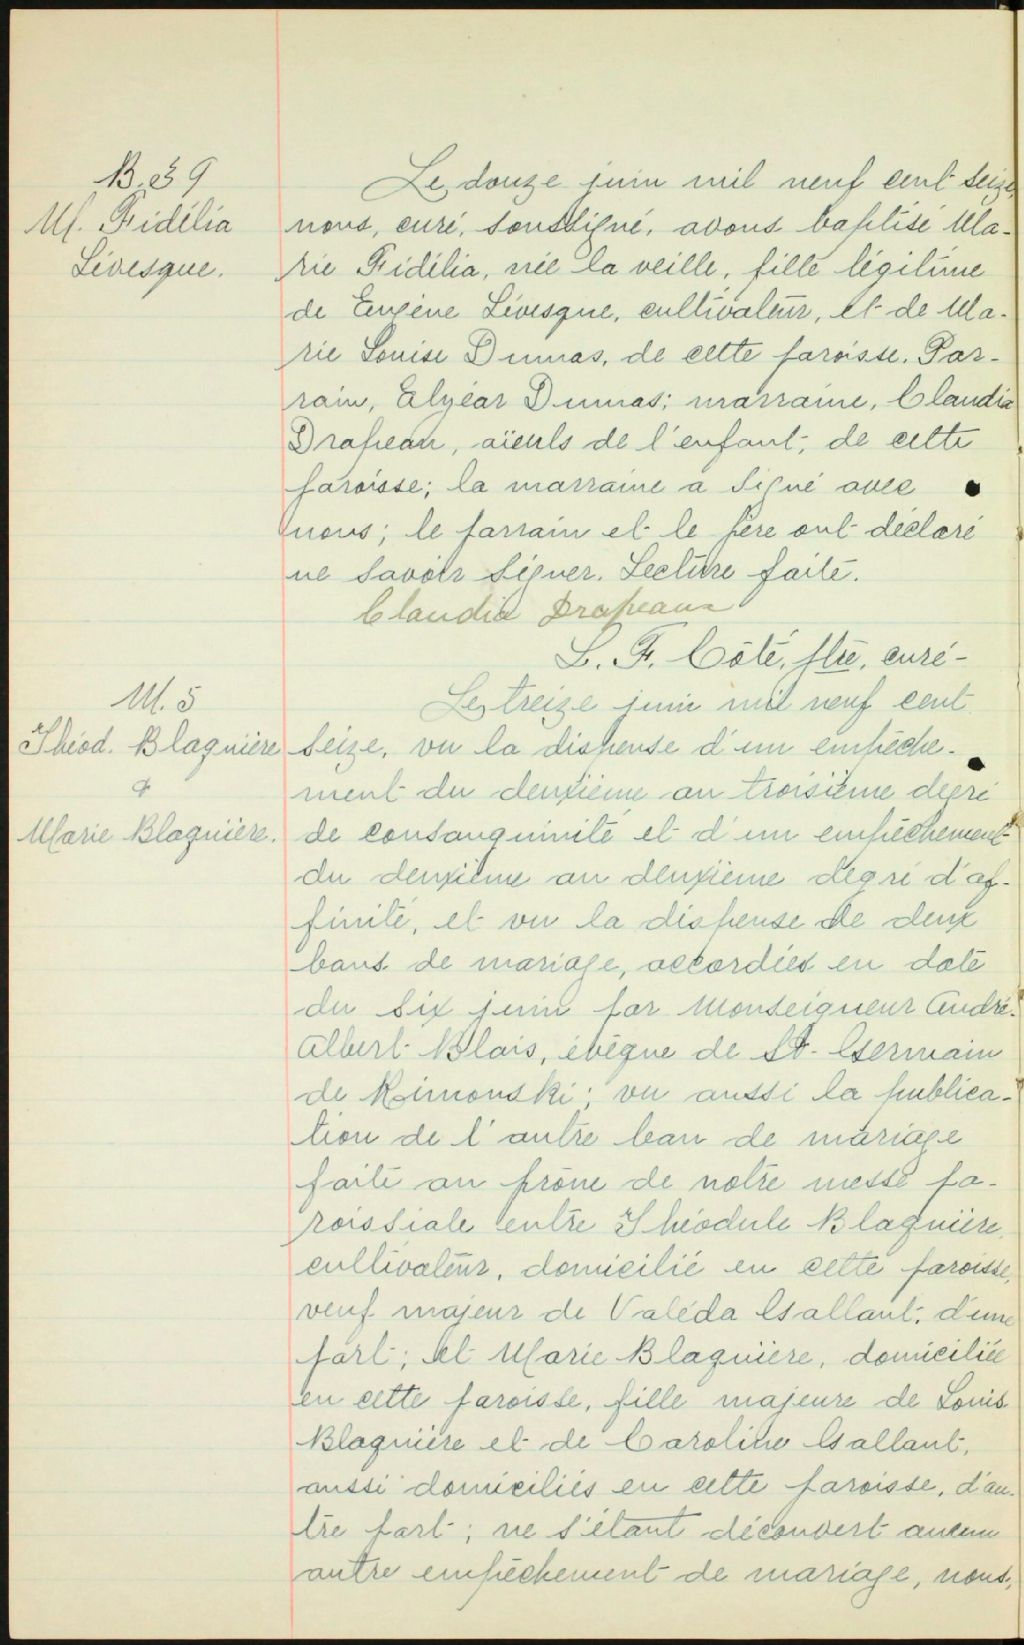 B. 39
M. Fidélia
Lévesque.
Le douze juin mil neuf cent seize,
nous, curé, soussigné, avons baptisé Ma-
rie Fidélia, née la veille, fille légitime
de Eugène Lévesque, cultivateur, et de Ma-
rie Louise Dumas, de cette paroisse. Par-
rain, Elzéar Dumas; marraine, Claudia
Drapeau, aïeuls de l'enfant, de cette
paroisse; la marraine a signé avec
nous; le parrain et le père ont déclaré
ne savoir signer. Lecture faite.
Claudia Drapeau
L. F. Côté, ptre, curé-
M. 5
Théod. Blaquière
&
Marie Blaquière.
Le treize juin mil neuf cent
seize, vu la dispense d'un empêche-
ment du deuxième au troisième degré
de consanguinité et d'un empêchement
du deuxième au deuxième degré d'af-
finité, et vu la dispense de deux
bans de mariage, accordées en date
du six juin par Monseigneur André-
Albert Blais, évêque de St-Germain
de Rimouski; vu aussi la publica-
tion de l'autre ban de mariage
faite au prône de notre messe pa-
roissiale entre Théodule Blaquière,
cultivateur, domicilié en cette paroisse,
veuf majeur de Valéda Gallant, d'une
part; et Marie Blaquière, domiciliée
en cette paroisse, fille majeure de Louis
Blaquière et de Caroline Gallant,
aussi domiciliés en cette paroisse, d'au-
tre part; ne s'étant découvert aucun
autre empêchement de mariage, nous,